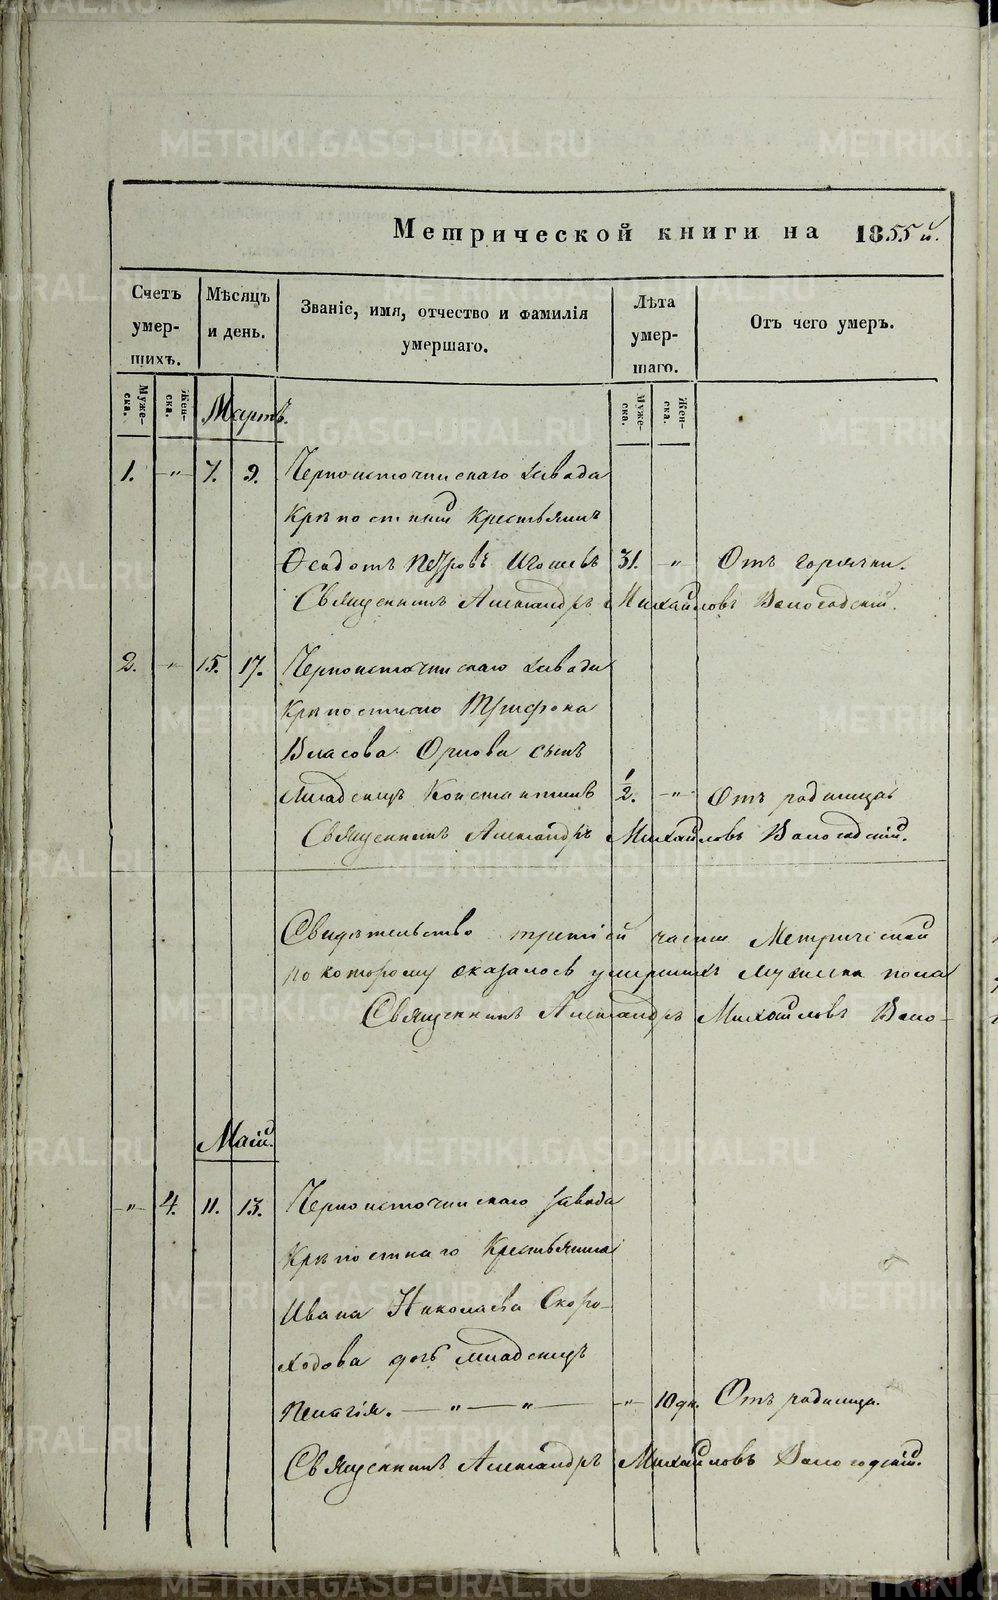 Метрической книги на 1855й.
Счетъ умер-шихъ.
Мѣсяцъ и день.
Званіе, имя, отчество и фамилія умершаго.
Лѣта умер-шаго.
Отъ чего умеръ.
Муже-ска.
Жен-ска.
Мартъ.
Муже-ска.
Жен-ска.
1. " 7. 9. Черноисточинскаго завода
Крѣпостный Крестьянинъ
Федотъ Петровъ 31. " Отъ горячки.
Священникъ Александръ Михайловъ Вологодскій.
2. " 15. 17. Черноисточинскаго завода
Крѣпостнаго Трифона
Власова Орлова сынъ
Младенецъ Константинъ 1/2. " Отъ родимца.
Священникъ Александръ Михайловъ Вологодскій.
Свидѣтельство третіей части Метрической
по которому оказалось умершихъ мужеска пола
Священникъ Александръ Михайловъ Воло-
Маій.
" 4. 11. 13. Черноисточинскаго завода
Крѣпостнаго Крестьянина
Ивана Николаева Скоро-
ходова дочь младенецъ
Пелагія. — " — " — " 10 дн. Отъ родимца.
Священникъ Александръ Михайловъ Вологодскій.
METRIKI.GASO-URAL.RU